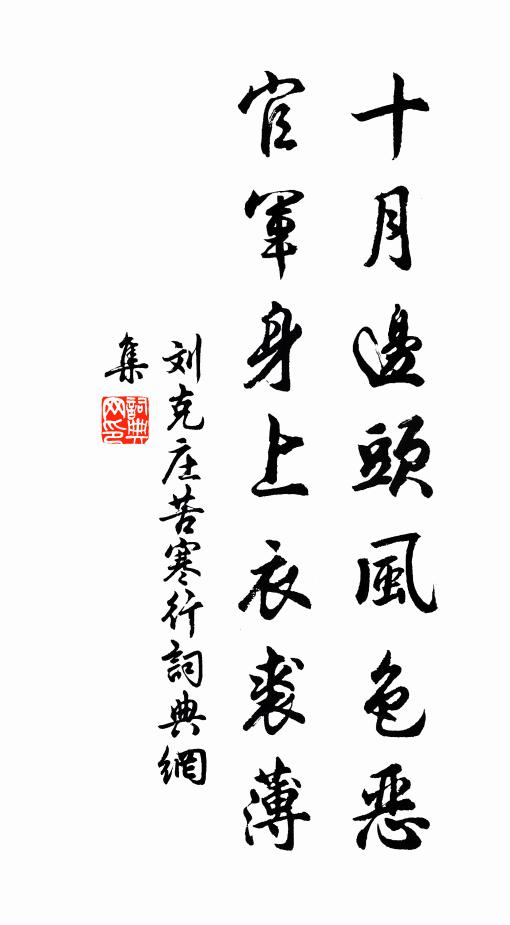 十月邊頭風色惡
官軍身上衣裘薄
刘克庄苦寒行詞典網
集
詞典网印